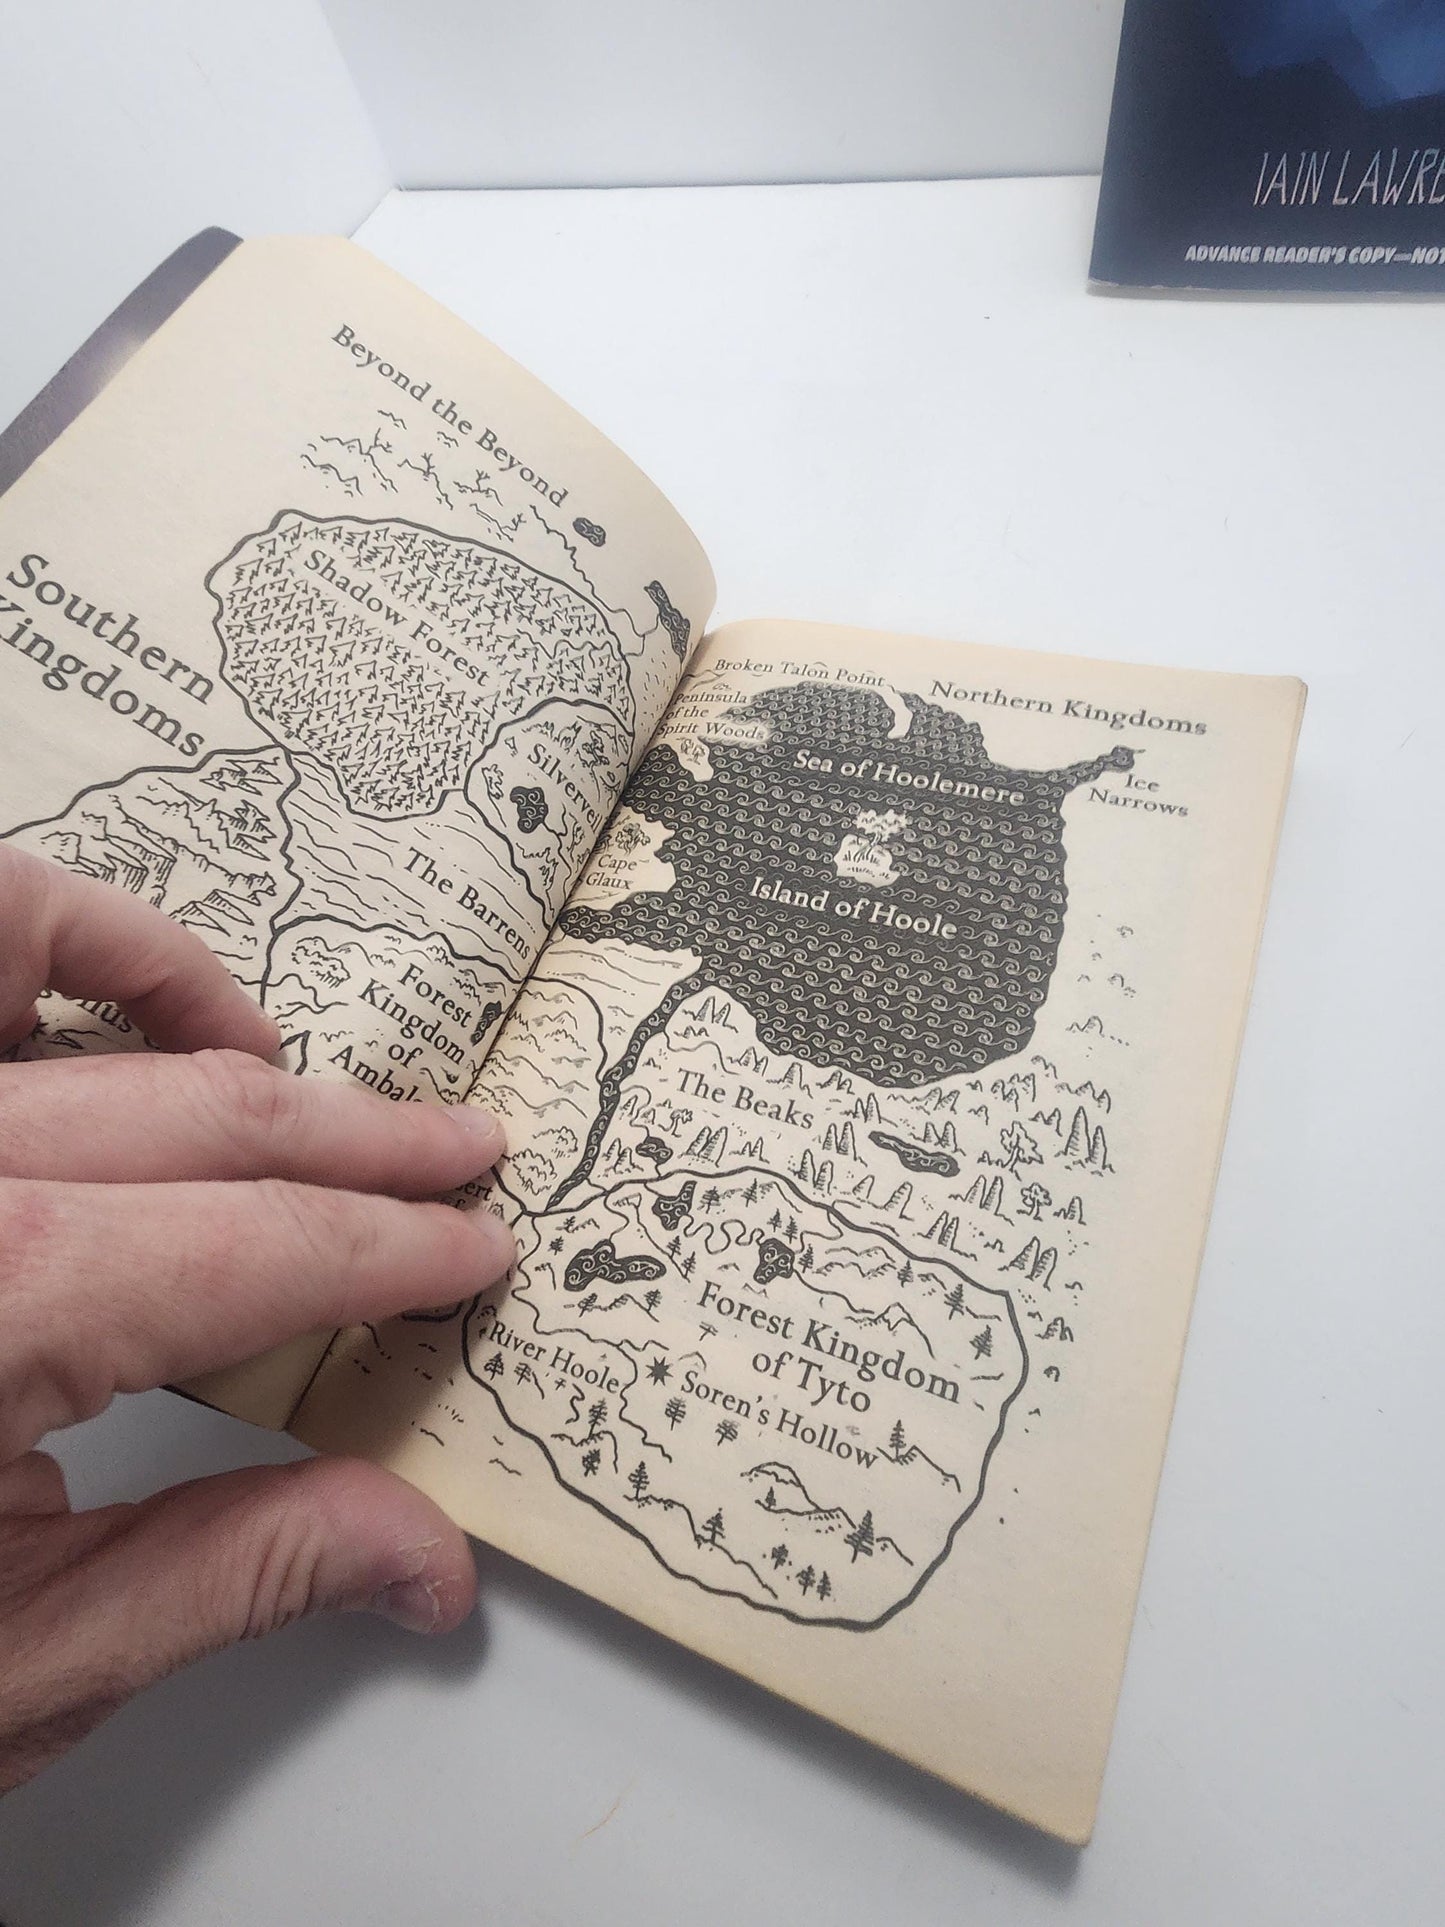 IAIN LAWRE
ADVANCE READER'S COPY—NOT
Beyond the Beyond
Southern
Kingdoms
Shadow Forest
Silverveil
The Barrens
Forest
Kingdom
of
Ambala
Broken Talon Point
Northern Kingdoms
Peninsula
of the
Spirit Woods
Sea of Hoolemere
Ice
Narrows
Cape
Glaux
Island of Hoole
The Beaks
Forest Kingdom
of Tyto
River Hoole
Soren's Hollow